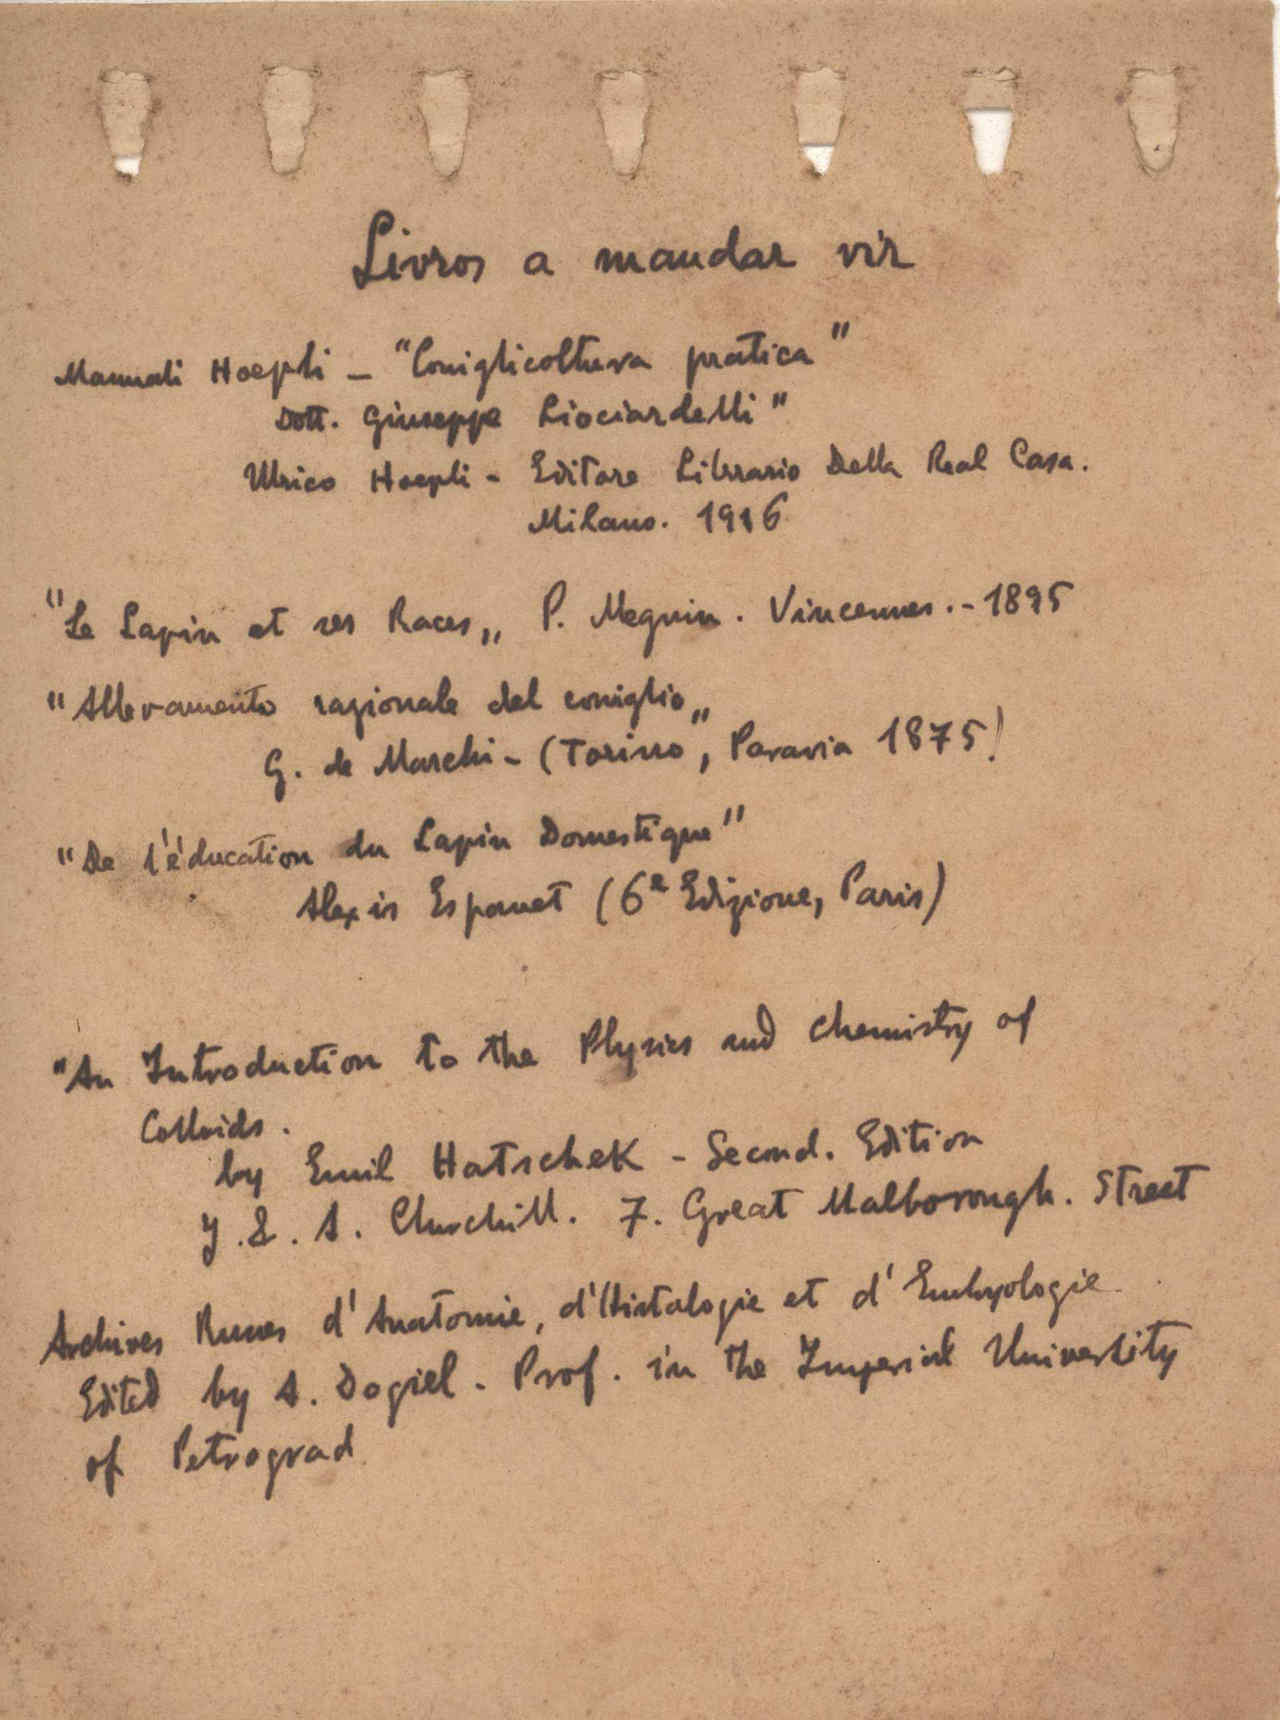 Livros a mandar vir
Manuali Hoepli - "Coniglicoltura pratica"
Dott. Giuseppe Liociardelli"
Ulrico Hoepli - Editore Librario Della Real Casa.
Milano. 1916
"Le Lapin et ses Races,, P. Megnin. Vincennes. - 1895
"Allevamento razionale del coniglio,,
G. de Marchi - (Torino, Paravia 1875!
"De l'éducation du Lapin Domestique"
Alexis Espanet (6e Edizione, Paris)
"An Introduction to the Physics and Chemistry of
Colloids.
by Emil Hatschek - Second. Edition
J. & A. Churchill. 7. Great Malborough. Street
Archives Russes d'Anatomie, d'Histologie et d'Embryologie
Edited by A. Dogiel - Prof. in the Imperial University
of Petrograd